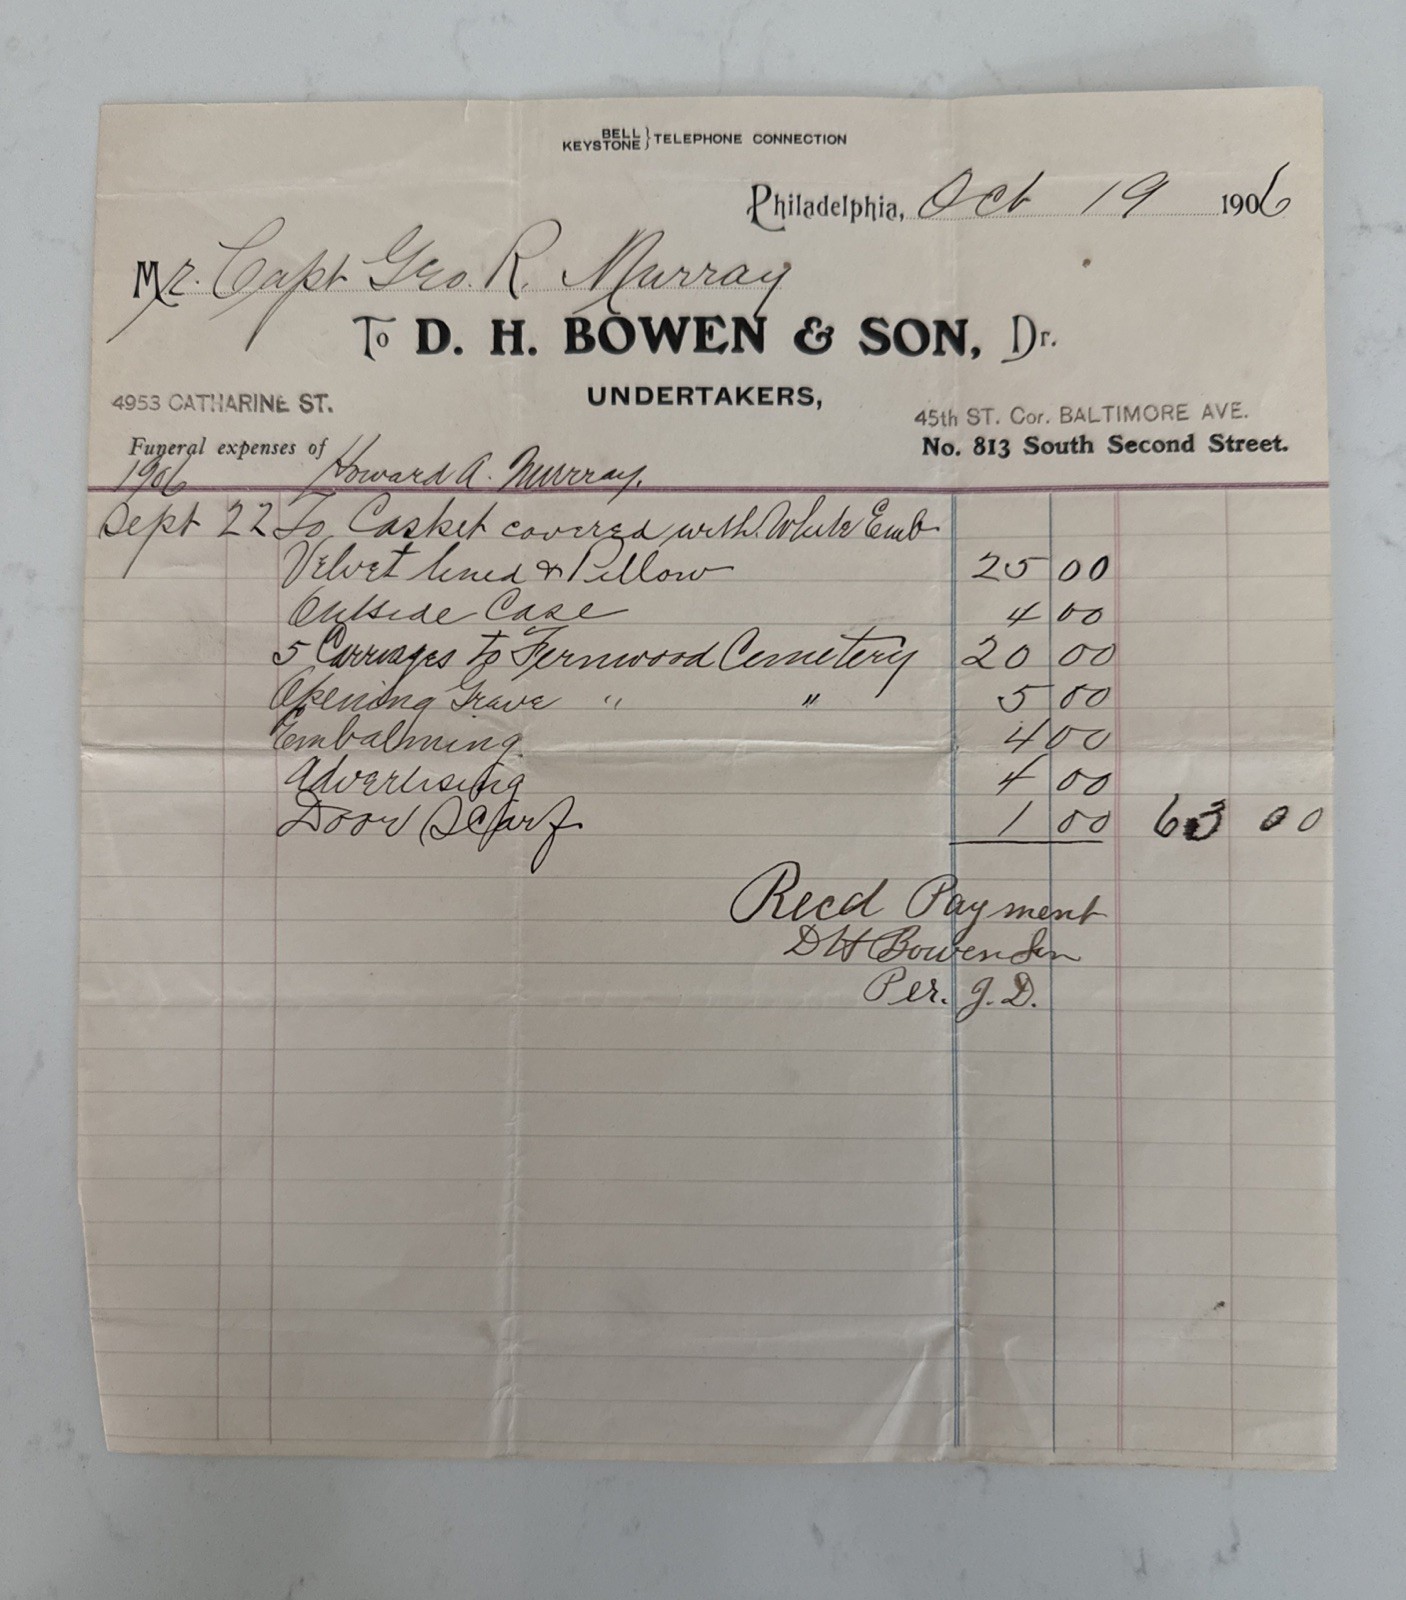 BELL
KEYSTONE } TELEPHONE CONNECTION
Philadelphia, Oct 19 1906
Mr. Capt Geo. R. Murray
To D. H. BOWEN & SON, Dr.
UNDERTAKERS,
4953 CATHARINE ST.
45th ST. Cor. BALTIMORE AVE.
Funeral expenses of Howard A. Murray.
No. 813 South Second Street.
1906
Sept 22 To Casket covered with White Emb
Velvet lined & Pillow 25 00
Outside Case 4 00
5 Carriages to Fernwood Cemetery 20 00
Opening Grave " " 5 00
Embalming 4 00
Advertising 4 00
Door Scarf 1 00 63 00
Recd Payment
D H Bowen Son
Per. J. D.